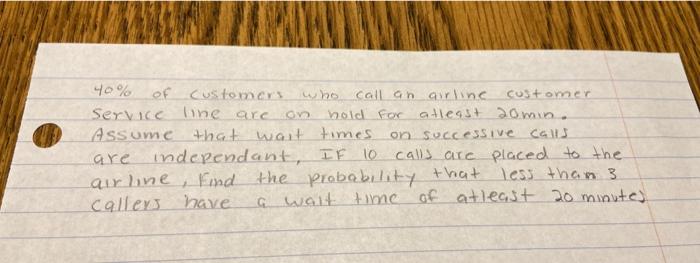 40% of customers who call an airline customer
service line are on hold for atleast 20min.
Assume that wait times on successive calls
are independant, IF 10 calls are placed to the
airline, Find the probability that less than 3
callers have a wait time of atleast 20 minutes